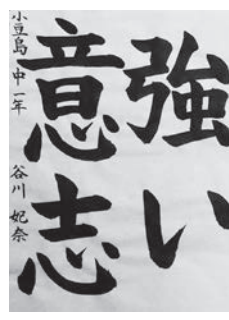 強い
意志
小豆島中一年 谷川妃奈